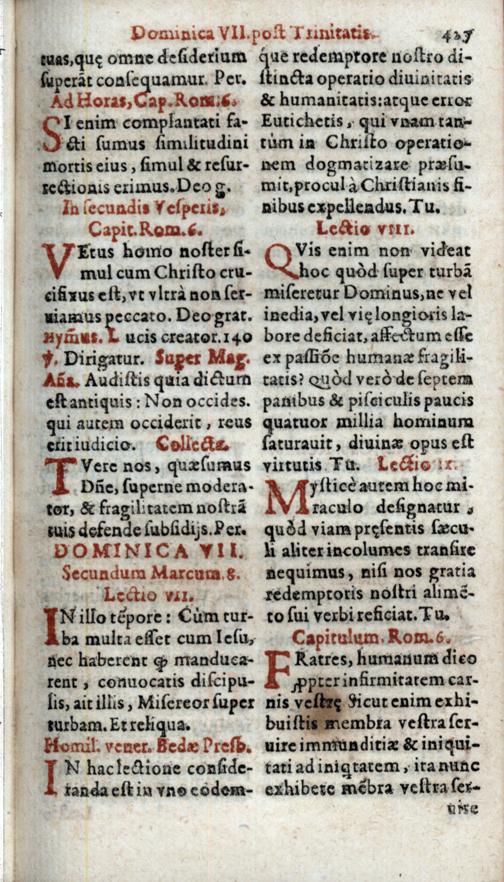 Dominica VII. post Trinitatis.
427
tuas, quę omne desiderium
superãt consequamur. Per.
Ad Horas, Cap. Rom. 6.
SI enim complantati fa-
cti sumus similitudini
mortis eius, simul & resur-
rectionis erimus. Deo g.
In secundis Vesperis,
Capit. Rom. 6.
VEtus homo noster si-
mul cum Christo cru-
cifixus est, vt vltrà non ser-
uiamus peccato. Deo grat.
Hymũs. Lucis creator. 140
℣. Dirigatur. Super Mag.
Aña. Audistis quia dictum
est antiquis: Non occides.
qui autem occiderit, reus
erit iudicio. Collecta.
TVere nos, quæsumus
Dñe, superne modera-
tor, & fragilitatem nostrã
tuis defende subsidijs. Per.
DOMINICA VII.
Secundum Marcum. 8.
Lectio vii.
IN illo tẽpore: Cùm tur-
ba multa esset cum Iesu,
nec haberent ꝙ manduca-
rent, conuocatis discipu-
lis, ait illis, Misereor super
turbam. Et reliqua.
Homil. vener. Bedæ Presb.
IN hac lectione conside-
randa est in vno eodem-
que redemptore nostro di-
stincta operatio diuinitatis
& humanitatis: atque error
Eutichetis, qui vnam tan-
tùm in Christo operatio-
nem dogmatizare præsu-
mit, procul à Christianis fi-
nibus expellendus. Tu.
Lectio viii.
QVis enim non videat
hoc quòd super turbã
miseretur Dominus, ne vel
inedia, vel vię longioris la-
bore deficiat, affectum esse
ex passiõe humanæ fragili-
tatis? quòd verò de septem
panibus & pisciculis paucis
quatuor millia hominum
saturauit, diuinæ opus est
virtutis. Tu. Lectio ix.
MYsticè autem hoc mi-
raculo designatur,
quòd viam pręsentis sæcu-
li aliter incolumes transire
nequimus, nisi nos gratia
redemptoris nostri alimẽ-
to sui verbi reficiat. Tu.
Capitulum. Rom. 6.
FRatres, humanum dico
ꝓpter infirmitatem car-
nis vestrę Sicut enim exhi-
buistis membra vestra ser-
uire immunditiæ & iniqui-
tati ad iniq̃tatem, ita nunc
exhibete mẽbra vestra ser-
uire